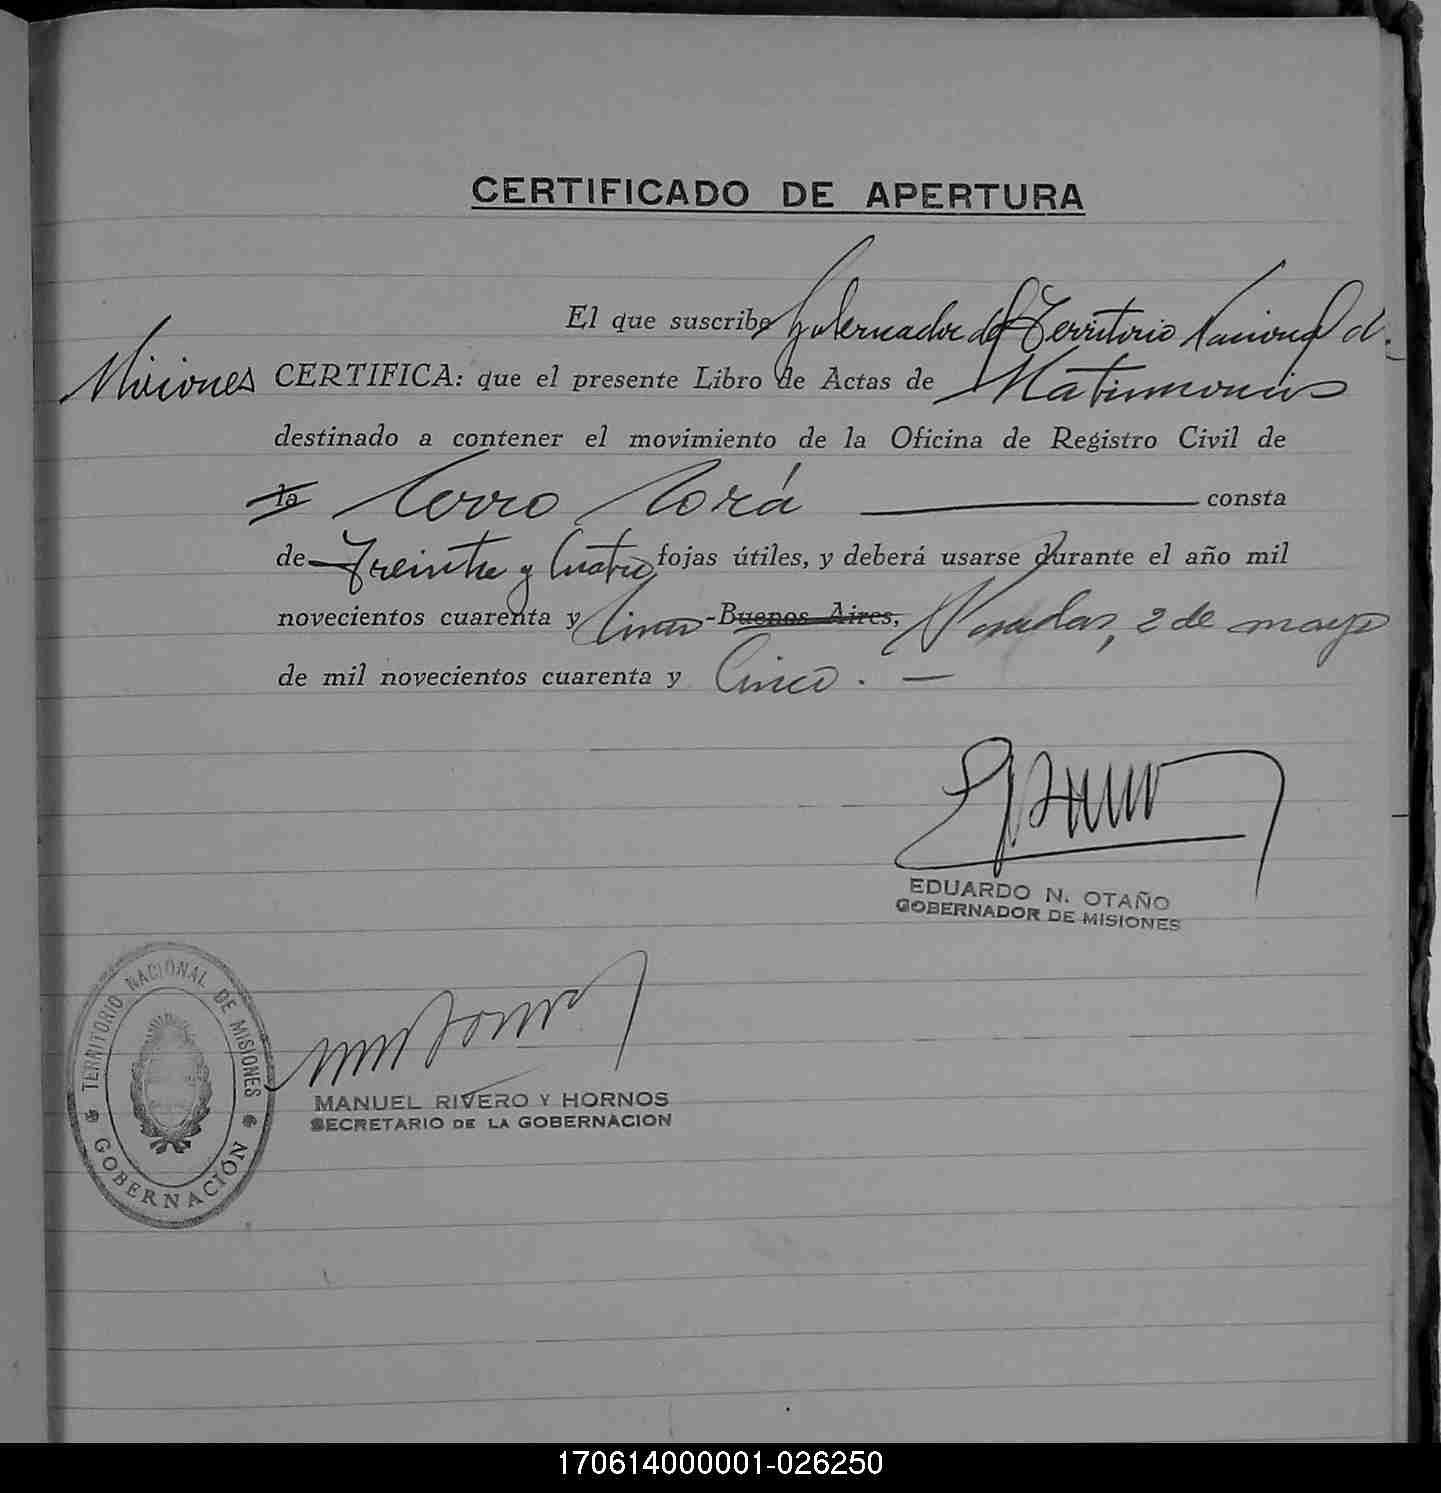 CERTIFICADO DE APERTURA
El que suscribe Gobernador del Territorio Nacional de
Misiones CERTIFICA: que el presente Libro de Actas de Matrimonios
destinado a contener el movimiento de la Oficina de Registro Civil de
la Cerro Corá consta
de Treinta y Cuatro fojas útiles, y deberá usarse durante el año mil
novecientos cuarenta y Cinco - Buenos Aires, Posadas, 2 de mayo
de mil novecientos cuarenta y Cinco. —
EDUARDO N. OTAÑO
GOBERNADOR DE MISIONES
TERRITORIO NACIONAL DE MISIONES
GOBERNACIÓN
MANUEL RIVERO Y HORNOS
SECRETARIO DE LA GOBERNACION
170614000001-026250